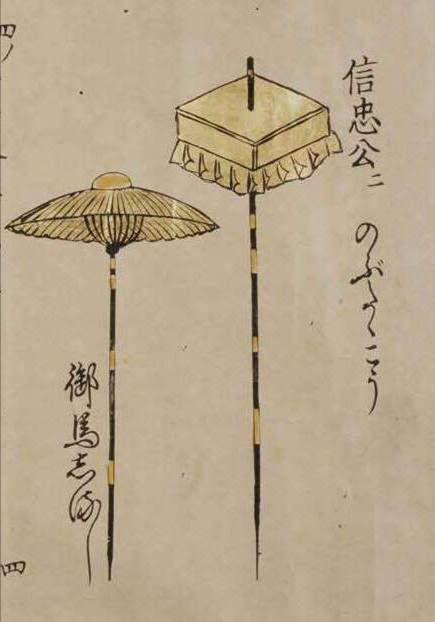 信忠公 二
のぶたゝこう
御馬志るし
四ノ
四